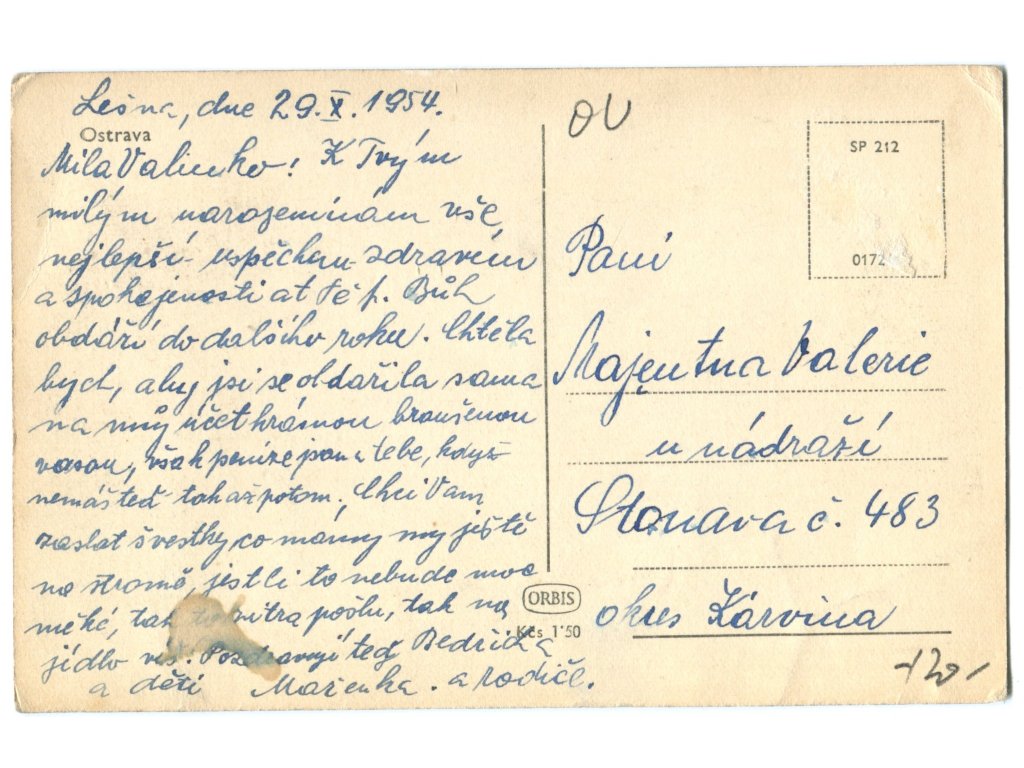 Lešna, dne 29.X.1954.
Ostrava
Milá Valinko! K Tvým
milým narozeninám vše
nejlepší - uspěchu - zdravím
a spokojenosti at Tě p. Bůh
obdáří do dalšího roku. Chtěla
bych, aby jsi se obdařila sama
na můj účet krásnou broušenou
vasou, však peníze jsou u tebe, když
nemáš teď tak až potom. Chci Vam
zaslat švestky co mámy my ještě
na stromě, jestli to nebude moc
měké, tak to zitra pošlu, tak na
jídlo Pozdravují teď Bedřiška
a děti Mařenka. a rodiče.
OU
SP 212
0172
Paní
Majentna Valerie
u nádraží
Stonava č. 483
okres Kárvina
ORBIS
Kčs 1'50